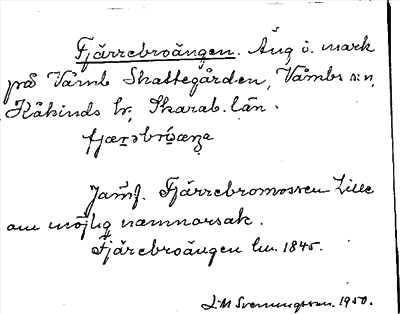 Fjärrebroängen. Äng o. mark
på Våmb Skattegården, Våmbs s:n,
Kåkinds hd, Skarab. län.
Jämf. Fjärrebromossen Lilla
om möjlig namnorsak.
Fjärebroängen lm. 1845.
L M Svenungsson. 1950.